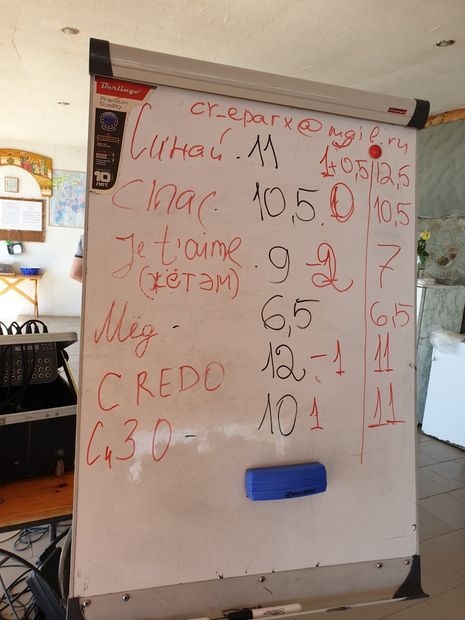 Berlingo
Premium
Quality
10
ЛЕТ
cr_eparx@mgili.ru
Синай. 11 1+0,5 12,5
Спас. 10,5. 0 10,5
Je t'aime
(жётэм) . 9 -2 7
Мёд - 6,5 6,5
CREDO 12 -1 11
СиЗО - 10 1 11